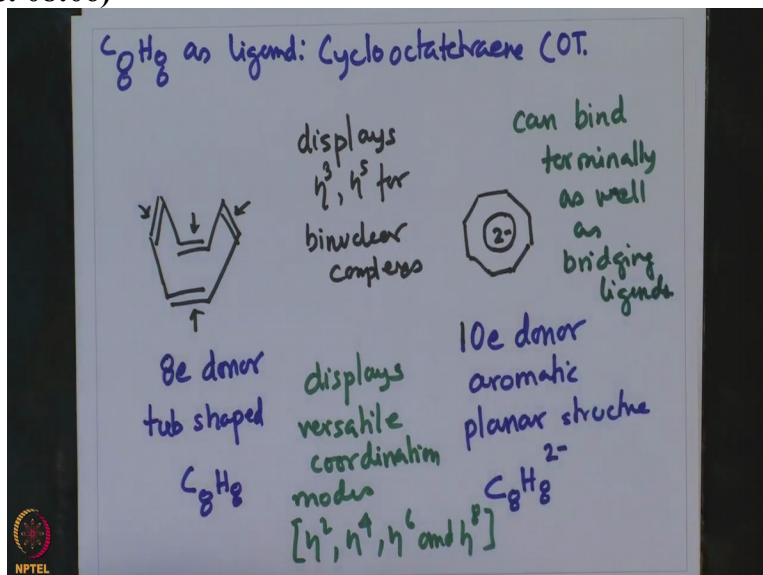 C8H8 as ligand: Cyclooctatetraene COT.
displays
η3, η5 for
binuclear
complexes
can bind
terminally
as well
as
bridging
ligands
2-
8e donor
tub shaped
C8H8
displays
versatile
coordination
modes
[η2, η4, η6 and η8]
10e donor
aromatic
planar structure
C8H8 2-
NPTEL